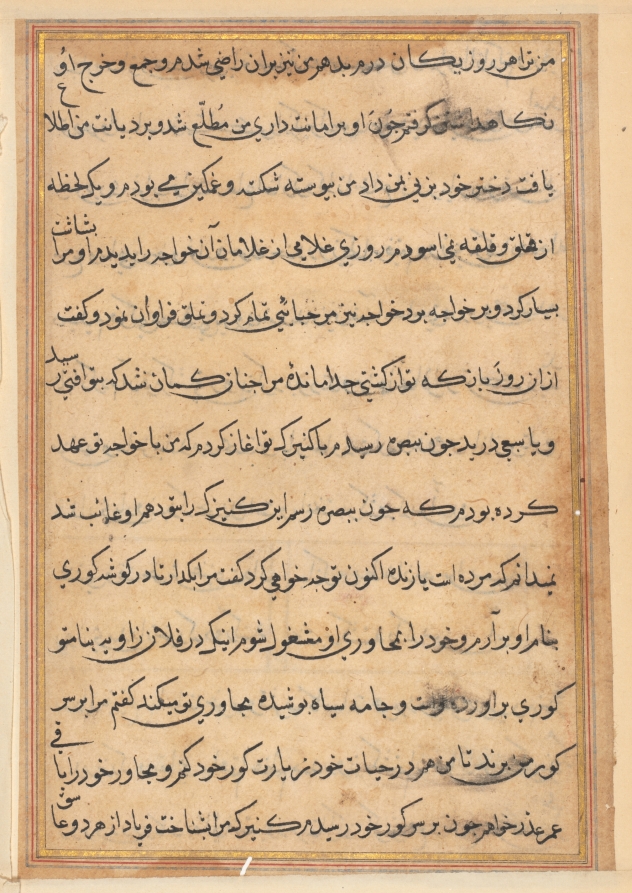 من ترا هر روز یکان درم بدهم من نیز بران راضی شدم و جمع و خرج او
نکاهداشتن کرفتم جون او بر امانت داری من مطلع شد و بر دیانت من اطلاع
یافت دختر خود بزنی بمن داد من پیوسته شکسته و غمکین می بودم و یک لحظه
از قلق و قلقه نمی اسودم روزی غلامی از غلامان آن خواجه را بدیدم او مرا بشاشت
بسیار کرد و بر خواجه برد خواجه نیز مرحبا تمام کرد و تملق فراوان نمود و کفت
ازان روز باز که تو از کشتی جدا مانده مرا جنان کمان شد که بتو افتی رسید
و یا سبعی درید جون ببصره رسیدم با کنیزک تو اغاز کردم که من با خواجه تو عهد
کرده بودم که جون ببصره رسم این کنیزک را بتو دهم او غائب شد
نمیدانم که مرده است یا زنده اکنون توجه خواهی کرد کفت مرا بکذار تا در کوشه کوری
بنام او برآرم و خود را بمجاوری او مشغول شوم اینک در فلان زاویه بنام تو
کوری براورده است و جامه سیاه بوشیده مجاوری تو میکند کفتم مرا بر سر
کور من برند تا من هم در حیات خود زیارت کور خود کنم و مجاور خود را باقی
عمر عذر خواهم جون بر سر کور خود رسیدم کنیزک مرا بشناخت فریاد از هر دو عاشق